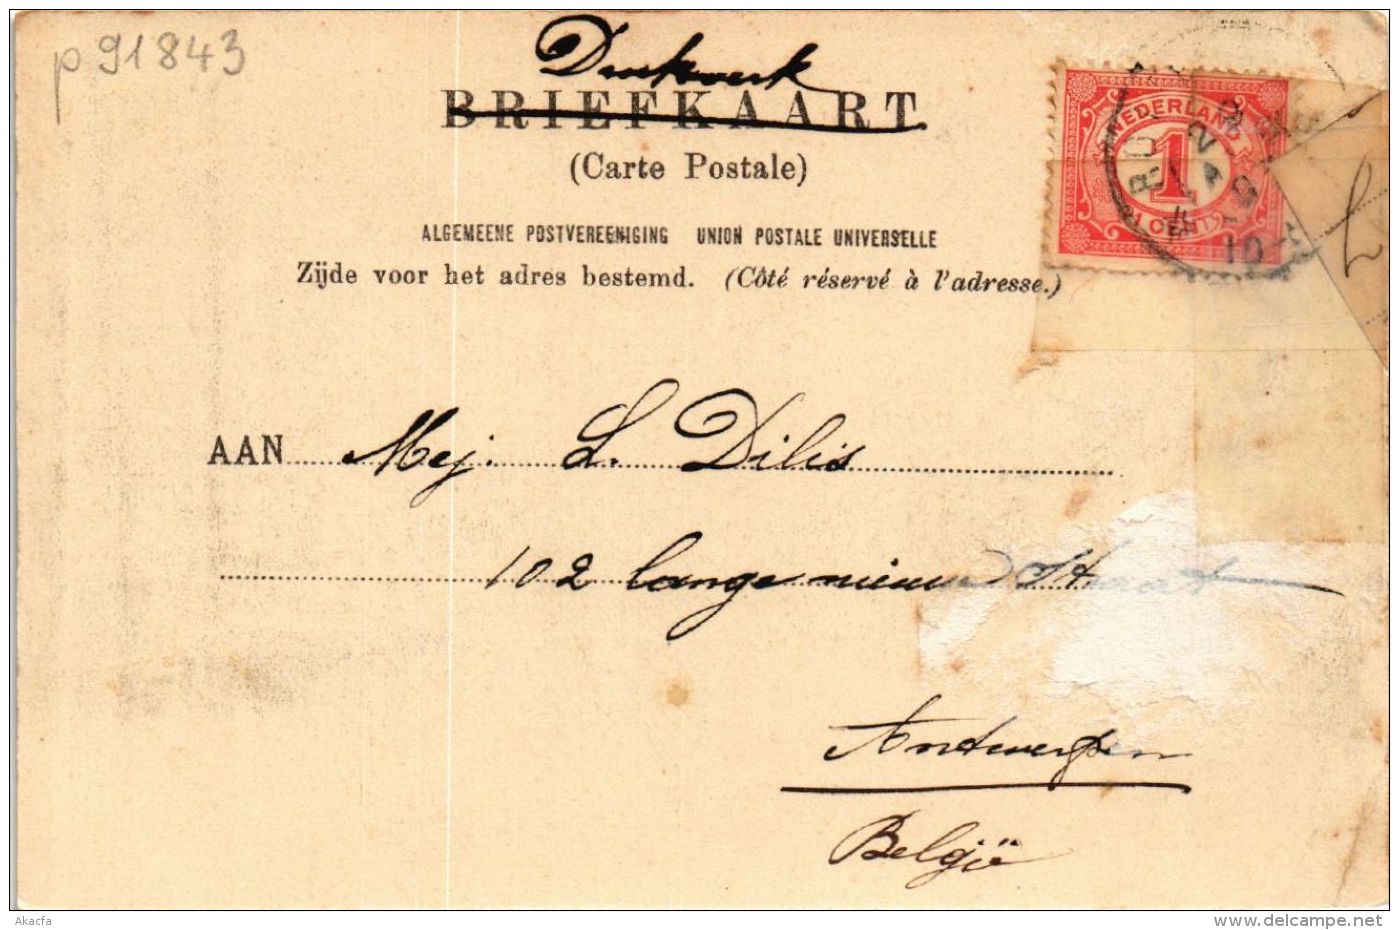 p 91843
Drukwerk
BRIEFKAART
(Carte Postale)
ALGEMEENE POSTVEREENIGING UNION POSTALE UNIVERSELLE
Zijde voor het adres bestemd. (Côté réservé à l'adresse.)
NEDERLAND
1
1 CENT
AAN Mej. L. Dilis
102 lange nieuwstraat
Antwerpen
België
Akacfa
www.delcampe.net